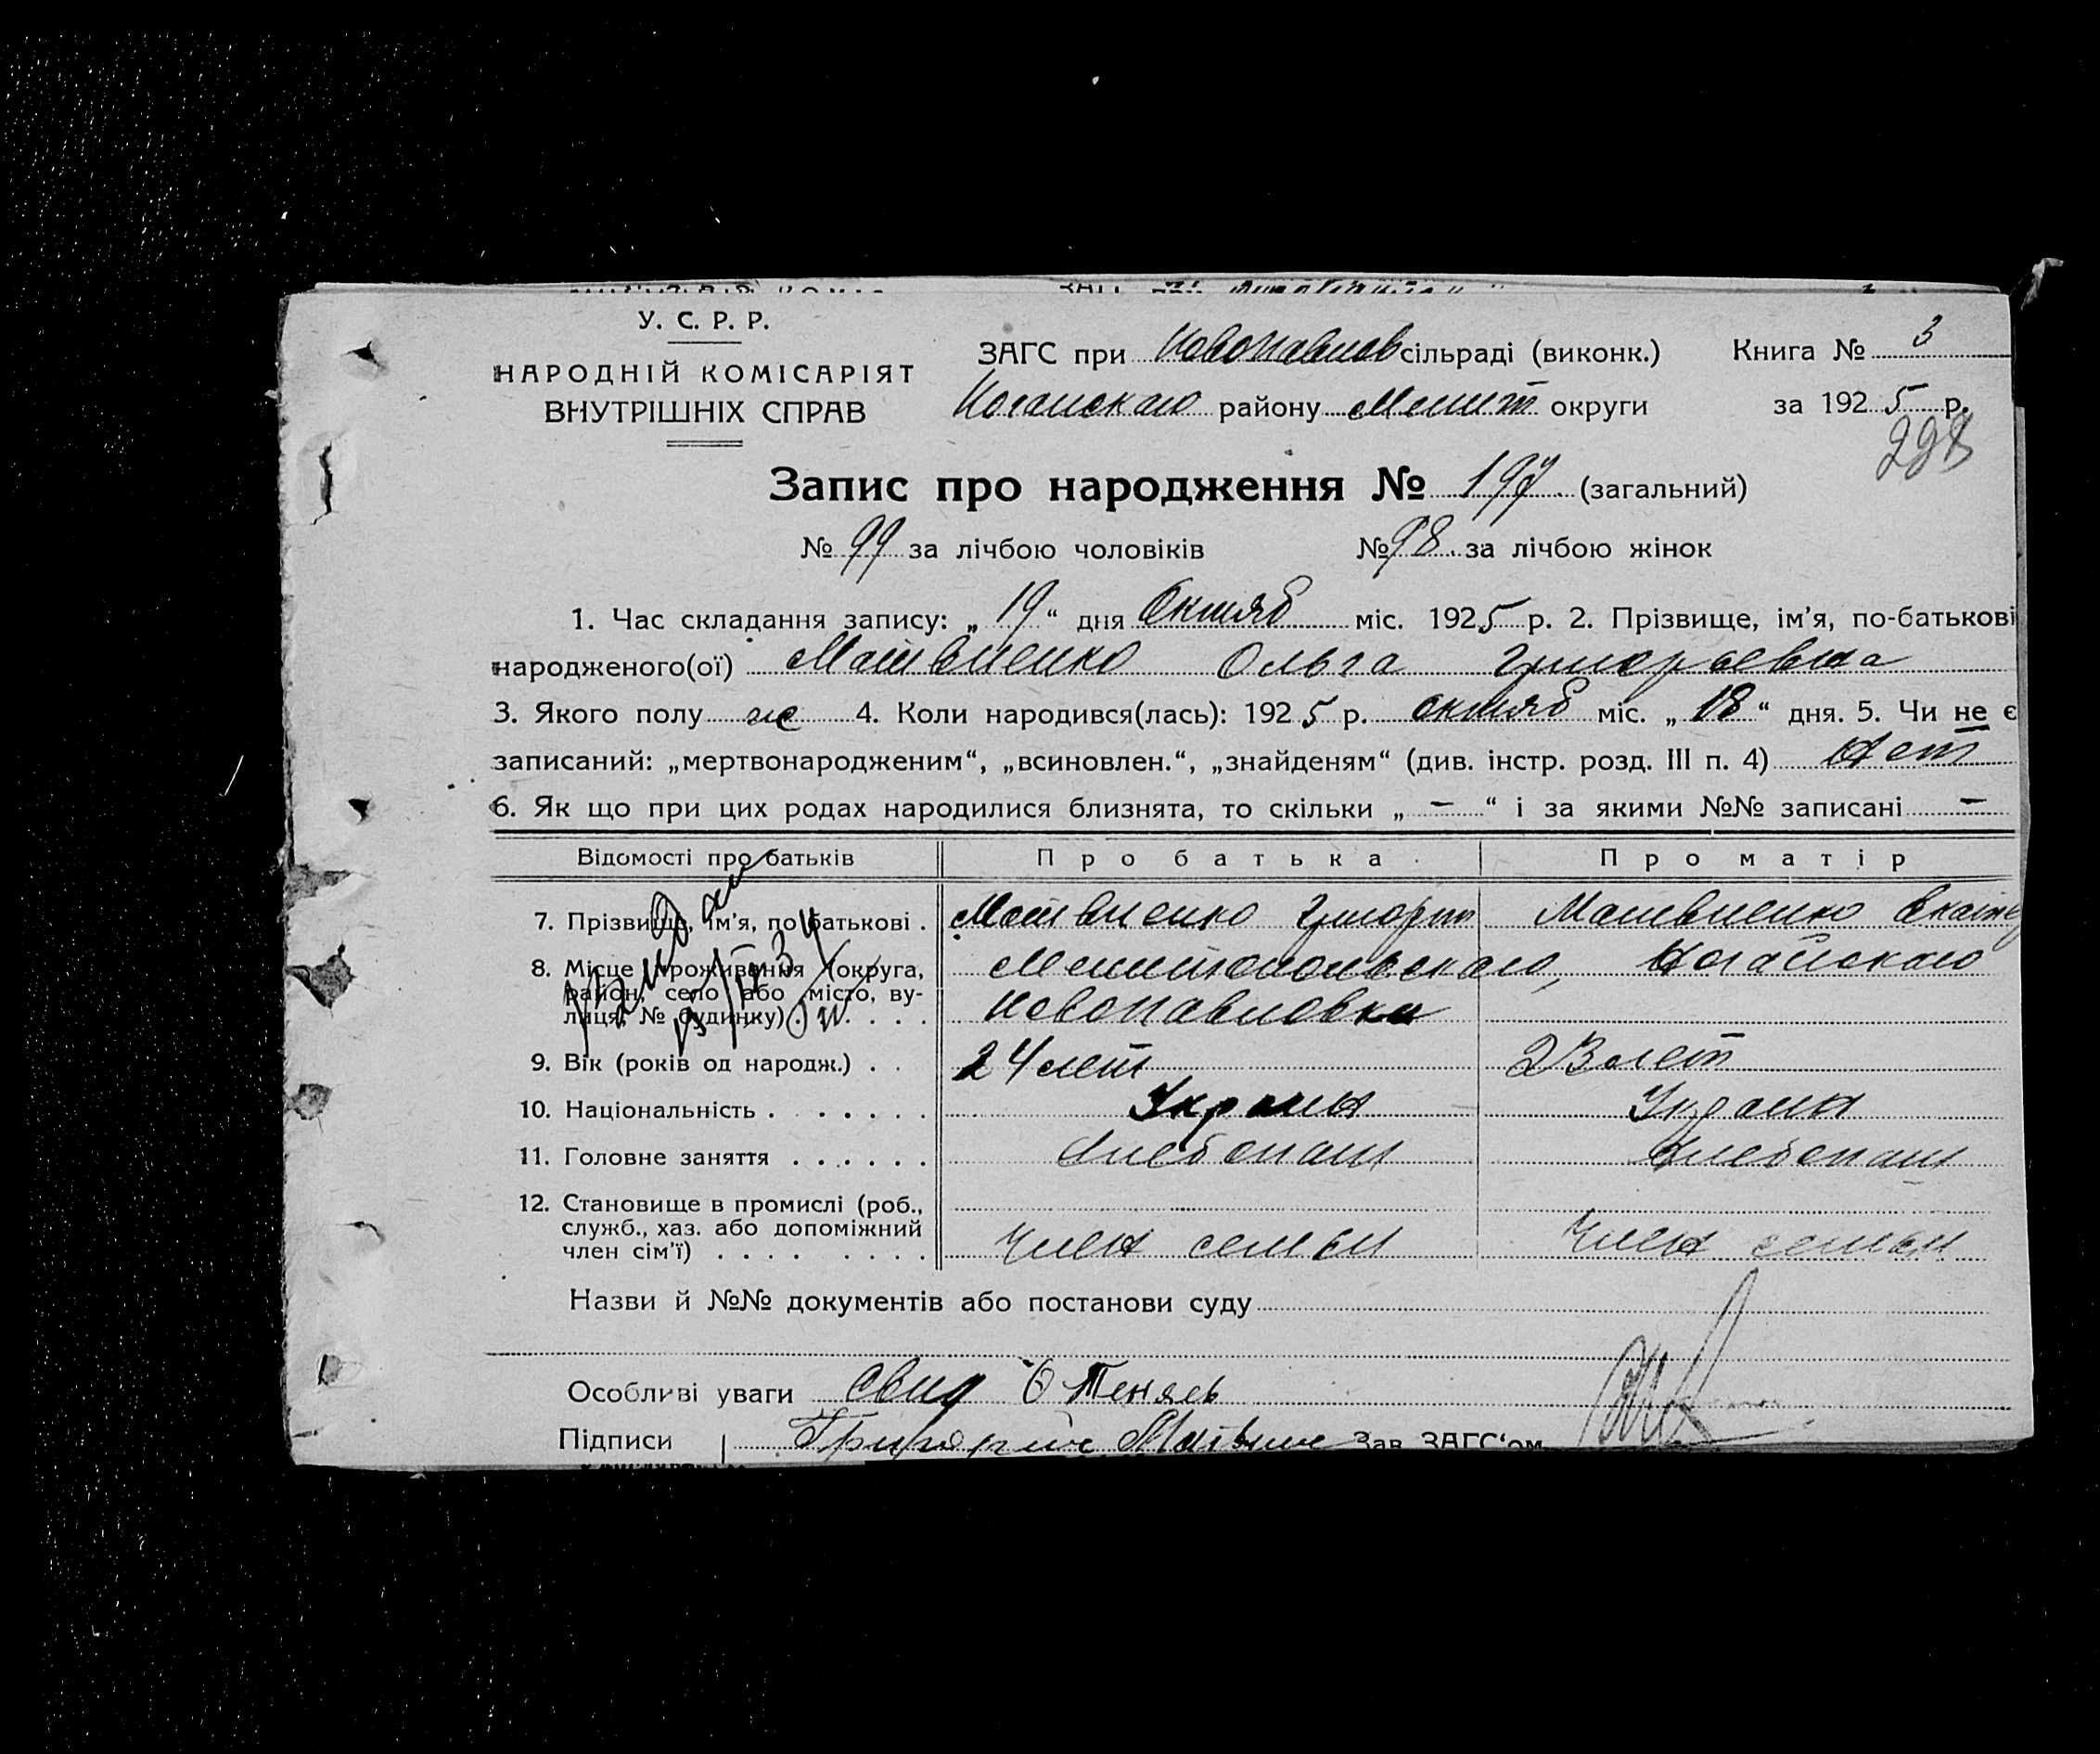 У. С. Р. Р.
НАРОДНІЙ КОМІСАРІЯТ
ВНУТРІШНІХ СПРАВ
ЗАГС при Новопавлов сільраді (виконк.) Книга № 3
Ногайскаго району Мелит округи за 1925 р.
Запис про народження № 197 (загальний)
№ 99 за лічбою чоловіків № 98 за лічбою жінок
1. Час складання запису: „19“ дня Октяб міс. 1925 р. 2. Прізвище, ім’я, по-батькові
народженого(ої) Матвиенко Ольга Григорьевна
3. Якого полу ж 4. Коли народився(лась): 1925 р. октяб міс. „18“ дня. 5. Чи не є
записаний: „мертвонародженим“, „всиновлен.“, „знайденям“ (див. інстр. розд. III п. 4) Нет
6. Як що при цих родах народилися близнята, то скільки „ — “ і за якими №№ записані —
Відомості про батьків Про батька Про матір
7. Прізвище, ім’я, по батькові . Матвиенко Григорт Матвиенко Екате
8. Місце проживання (округа, Мелитопольскаго, Ногайскаго
район, село або місто, ву-
лиця, № будинку) . . . . . Новопавловка
9. Вік (років од народж.) . . 24 лет 23 лет
10. Національність . . . . . . Украин Украин
11. Головне заняття . . . . . . Хлебопаш Хлебопаш
12. Становище в промислі (роб.,
служб., хаз. або допоміжний
член сім’ї) . . . . . . . . Член семьи Член семьи
Назви й №№ документів або постанови суду
Особливі уваги Свид
Підписи Григорие Матвие Зав. ЗАГС‘ом